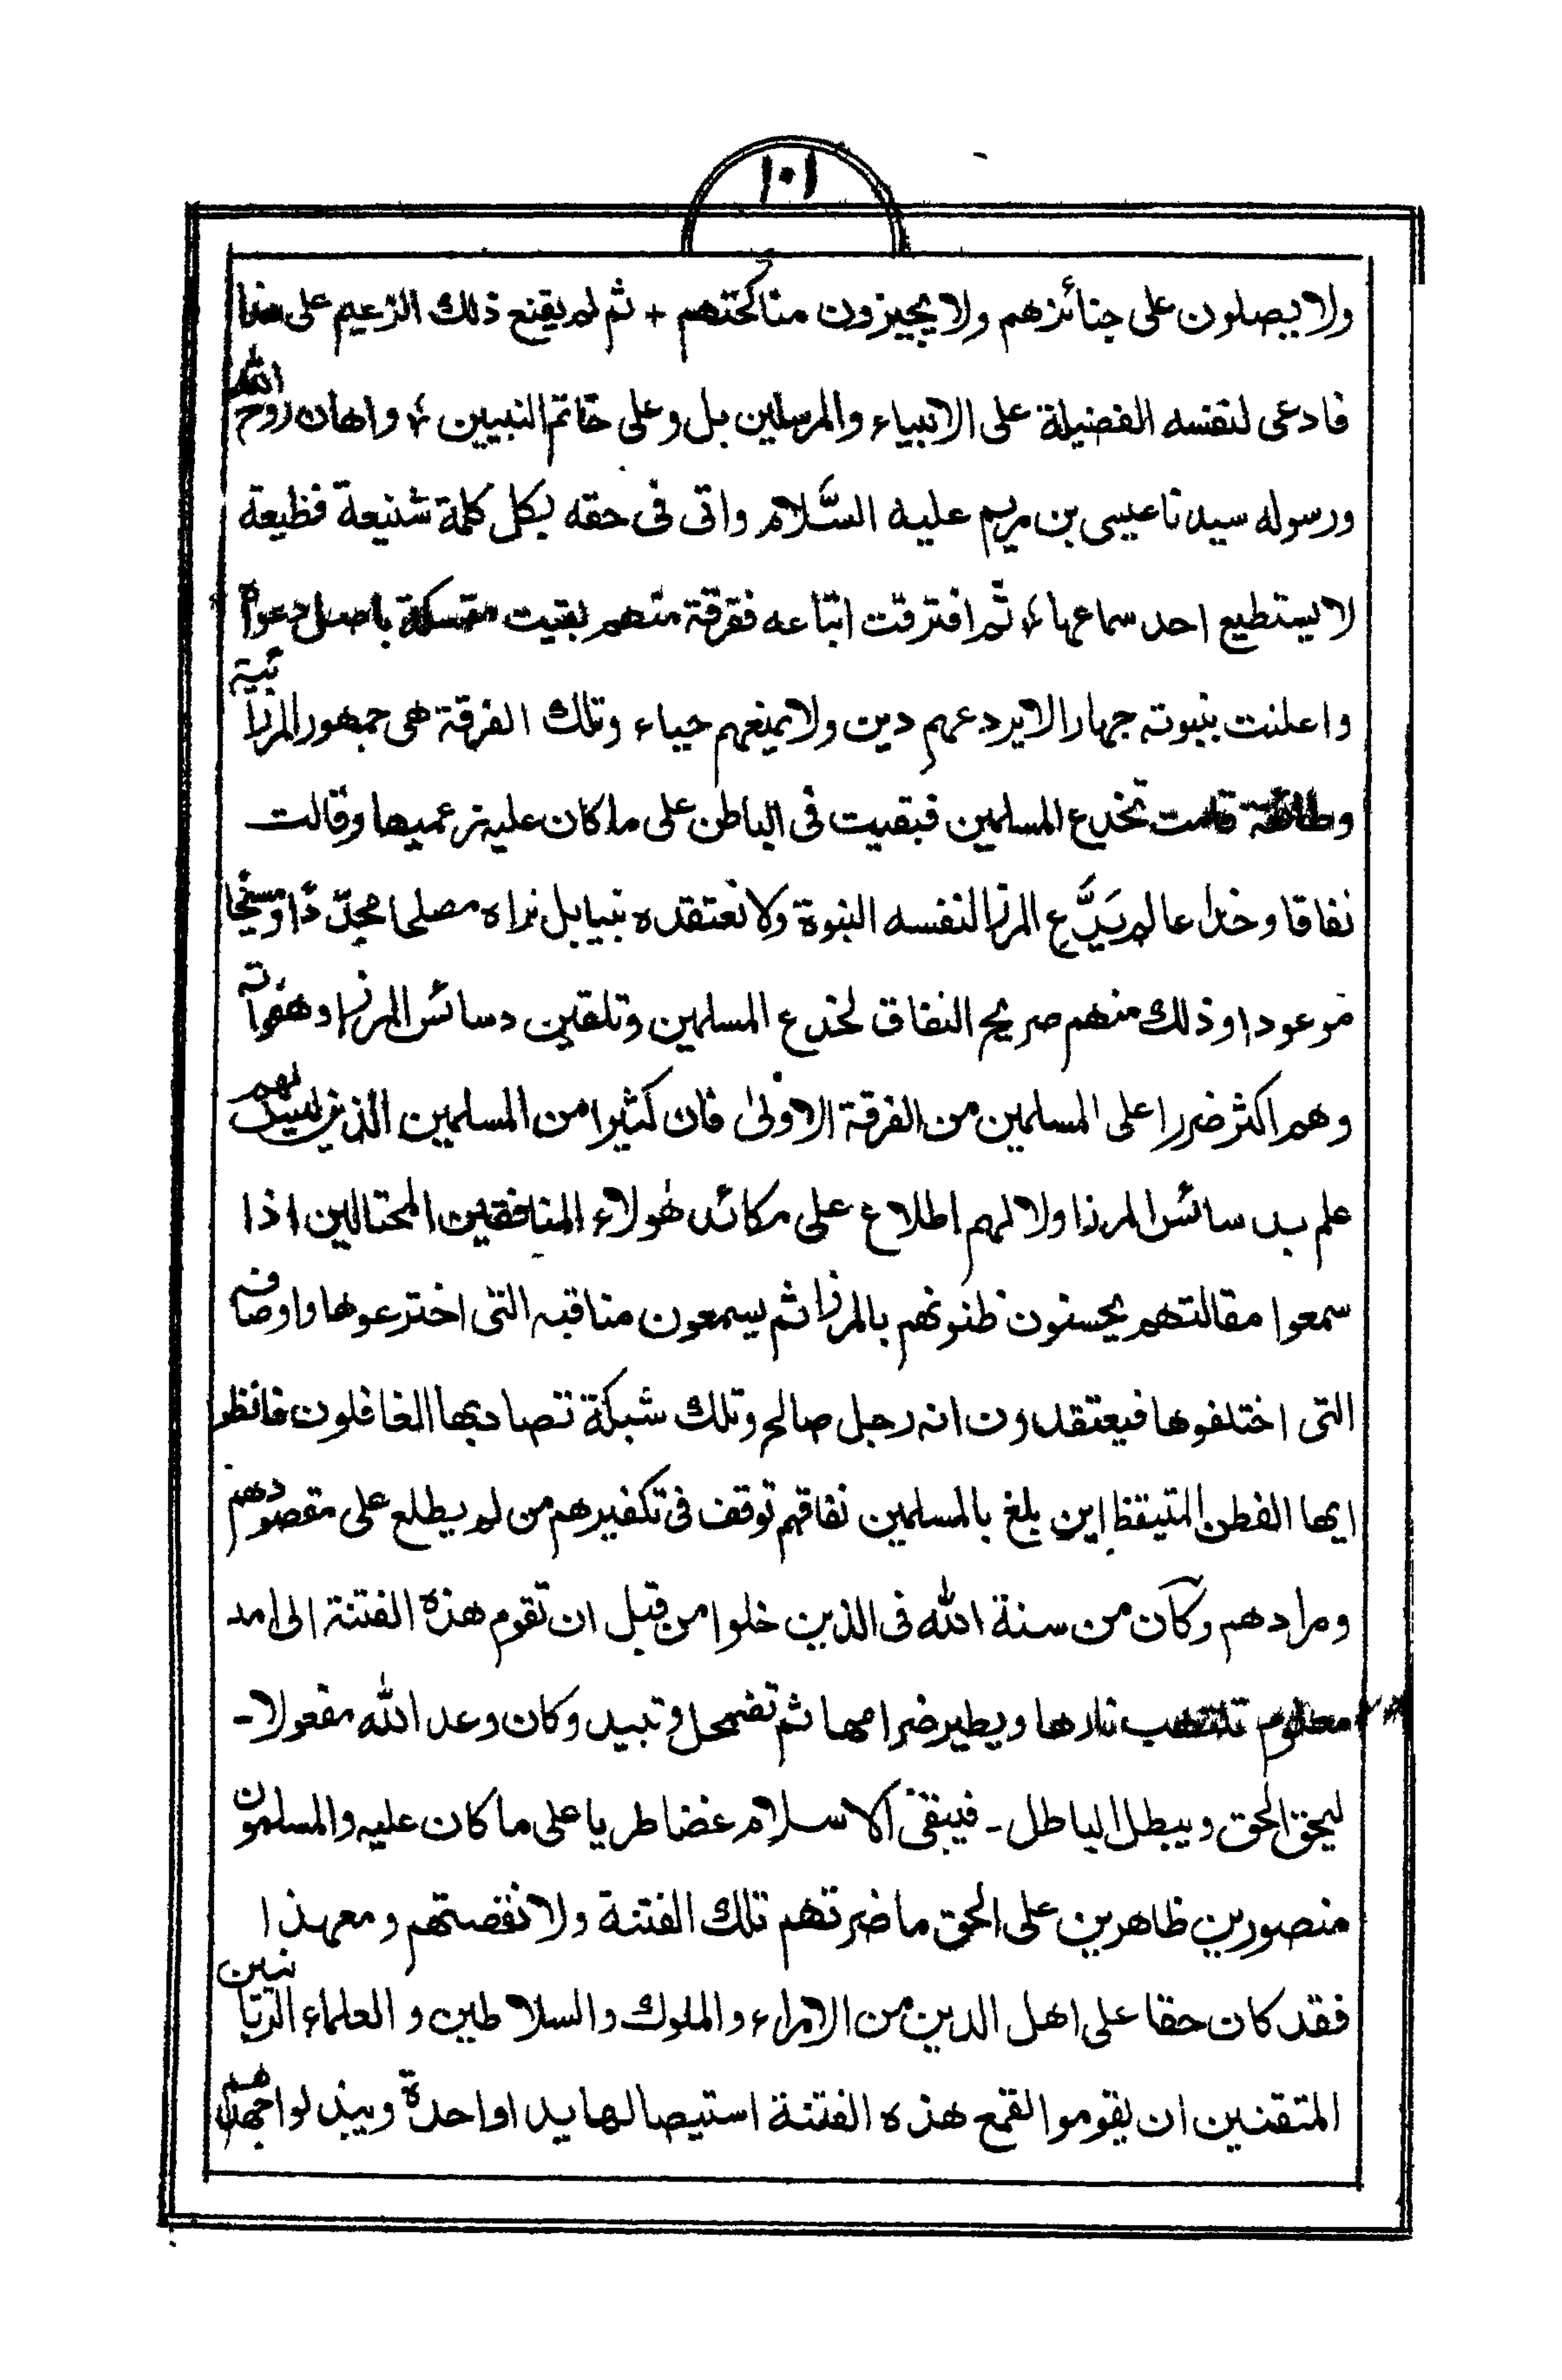 ١٠١
ولا يصلون على جنائزهم ولا يجيزون مناكحتهم + ثم لم يقنع ذلك الزعيم على هذا
فادعى لنفسه الفضيلة على الانبياء والمرسلين بل وعلى خاتم النبيين ؛ واهان روح الله
ورسوله سيدنا عيسى بن مريم عليه السَّلام واتى فى حقه بكل كلمة شنيعة فظيعة
لا يستطيع احد سماعها ؛ ثم افترقت اتباعه ففرقة منهم بقيت متمسكة باصل دعواه
واعلنت بنبوته جهارا لا يردعهم دين ولا يمنعهم حياء وتلك الفرقة هى جمهور المرزائية
وطائفة قامت تخدع المسلمين فبقيت فى الباطن على ما كان عليه زعميها وقالت
نفاقا وخداعا لم يَدَّع المرزا لنفسه النبوة ولا نعتقده نبيا بل نراه مصلحا مجدّدًا ومسيحا
موعودا وذلك منهم صريح النفاق لخدع المسلمين وتلقين دسائس المرزا وهفواته
وهم اكثر ضررا على المسلمين من الفرقة الاولىٰ فان كثيرا من المسلمين الذين ليس لهم
علم بدسائس المرزا ولا لهم اطلاع على مكائد هٰولاء المنافقين المحتالين اذا
سمعوا مقالتهم يحسنون ظنونهم بالمرزا ثم يسمعون مناقبه التى اخترعوها واوصافه
التى اختلفوها فيعتقدون انه رجل صالح وتلك شبكة تصاد بها الغافلون فانظر
ايها الفطن المتيقظ اين بلغ بالمسلمين نفاقهم توقف فى تكفيرهم من لم يطلع على مقصودهم
ومرادهم وكان من سنة الله فى الذين خلوا من قبل ان تقوم هذه الفتنة الى امد
معلوم تلتهب نارها ويطير ضرامها ثم تضمحل وتبيد وكان وعد الله مفعولا-
ليحق الحق ويبطل الباطل- فيبقى الاسلام غضا طريا على ما كان عليه والمسلمون
منصورين ظاهرين على الحق ما ضرتهم تلك الفتنة ولا نقصتهم ومعهذا
فقد كان حقا على اهل الدين من الامراء والملوك والسلاطين و العلماء الربانيين
المتقنين ان يقوموا لقمع هذه الفتنة استيصالها يدا واحدة ويبذلوا جهدهم